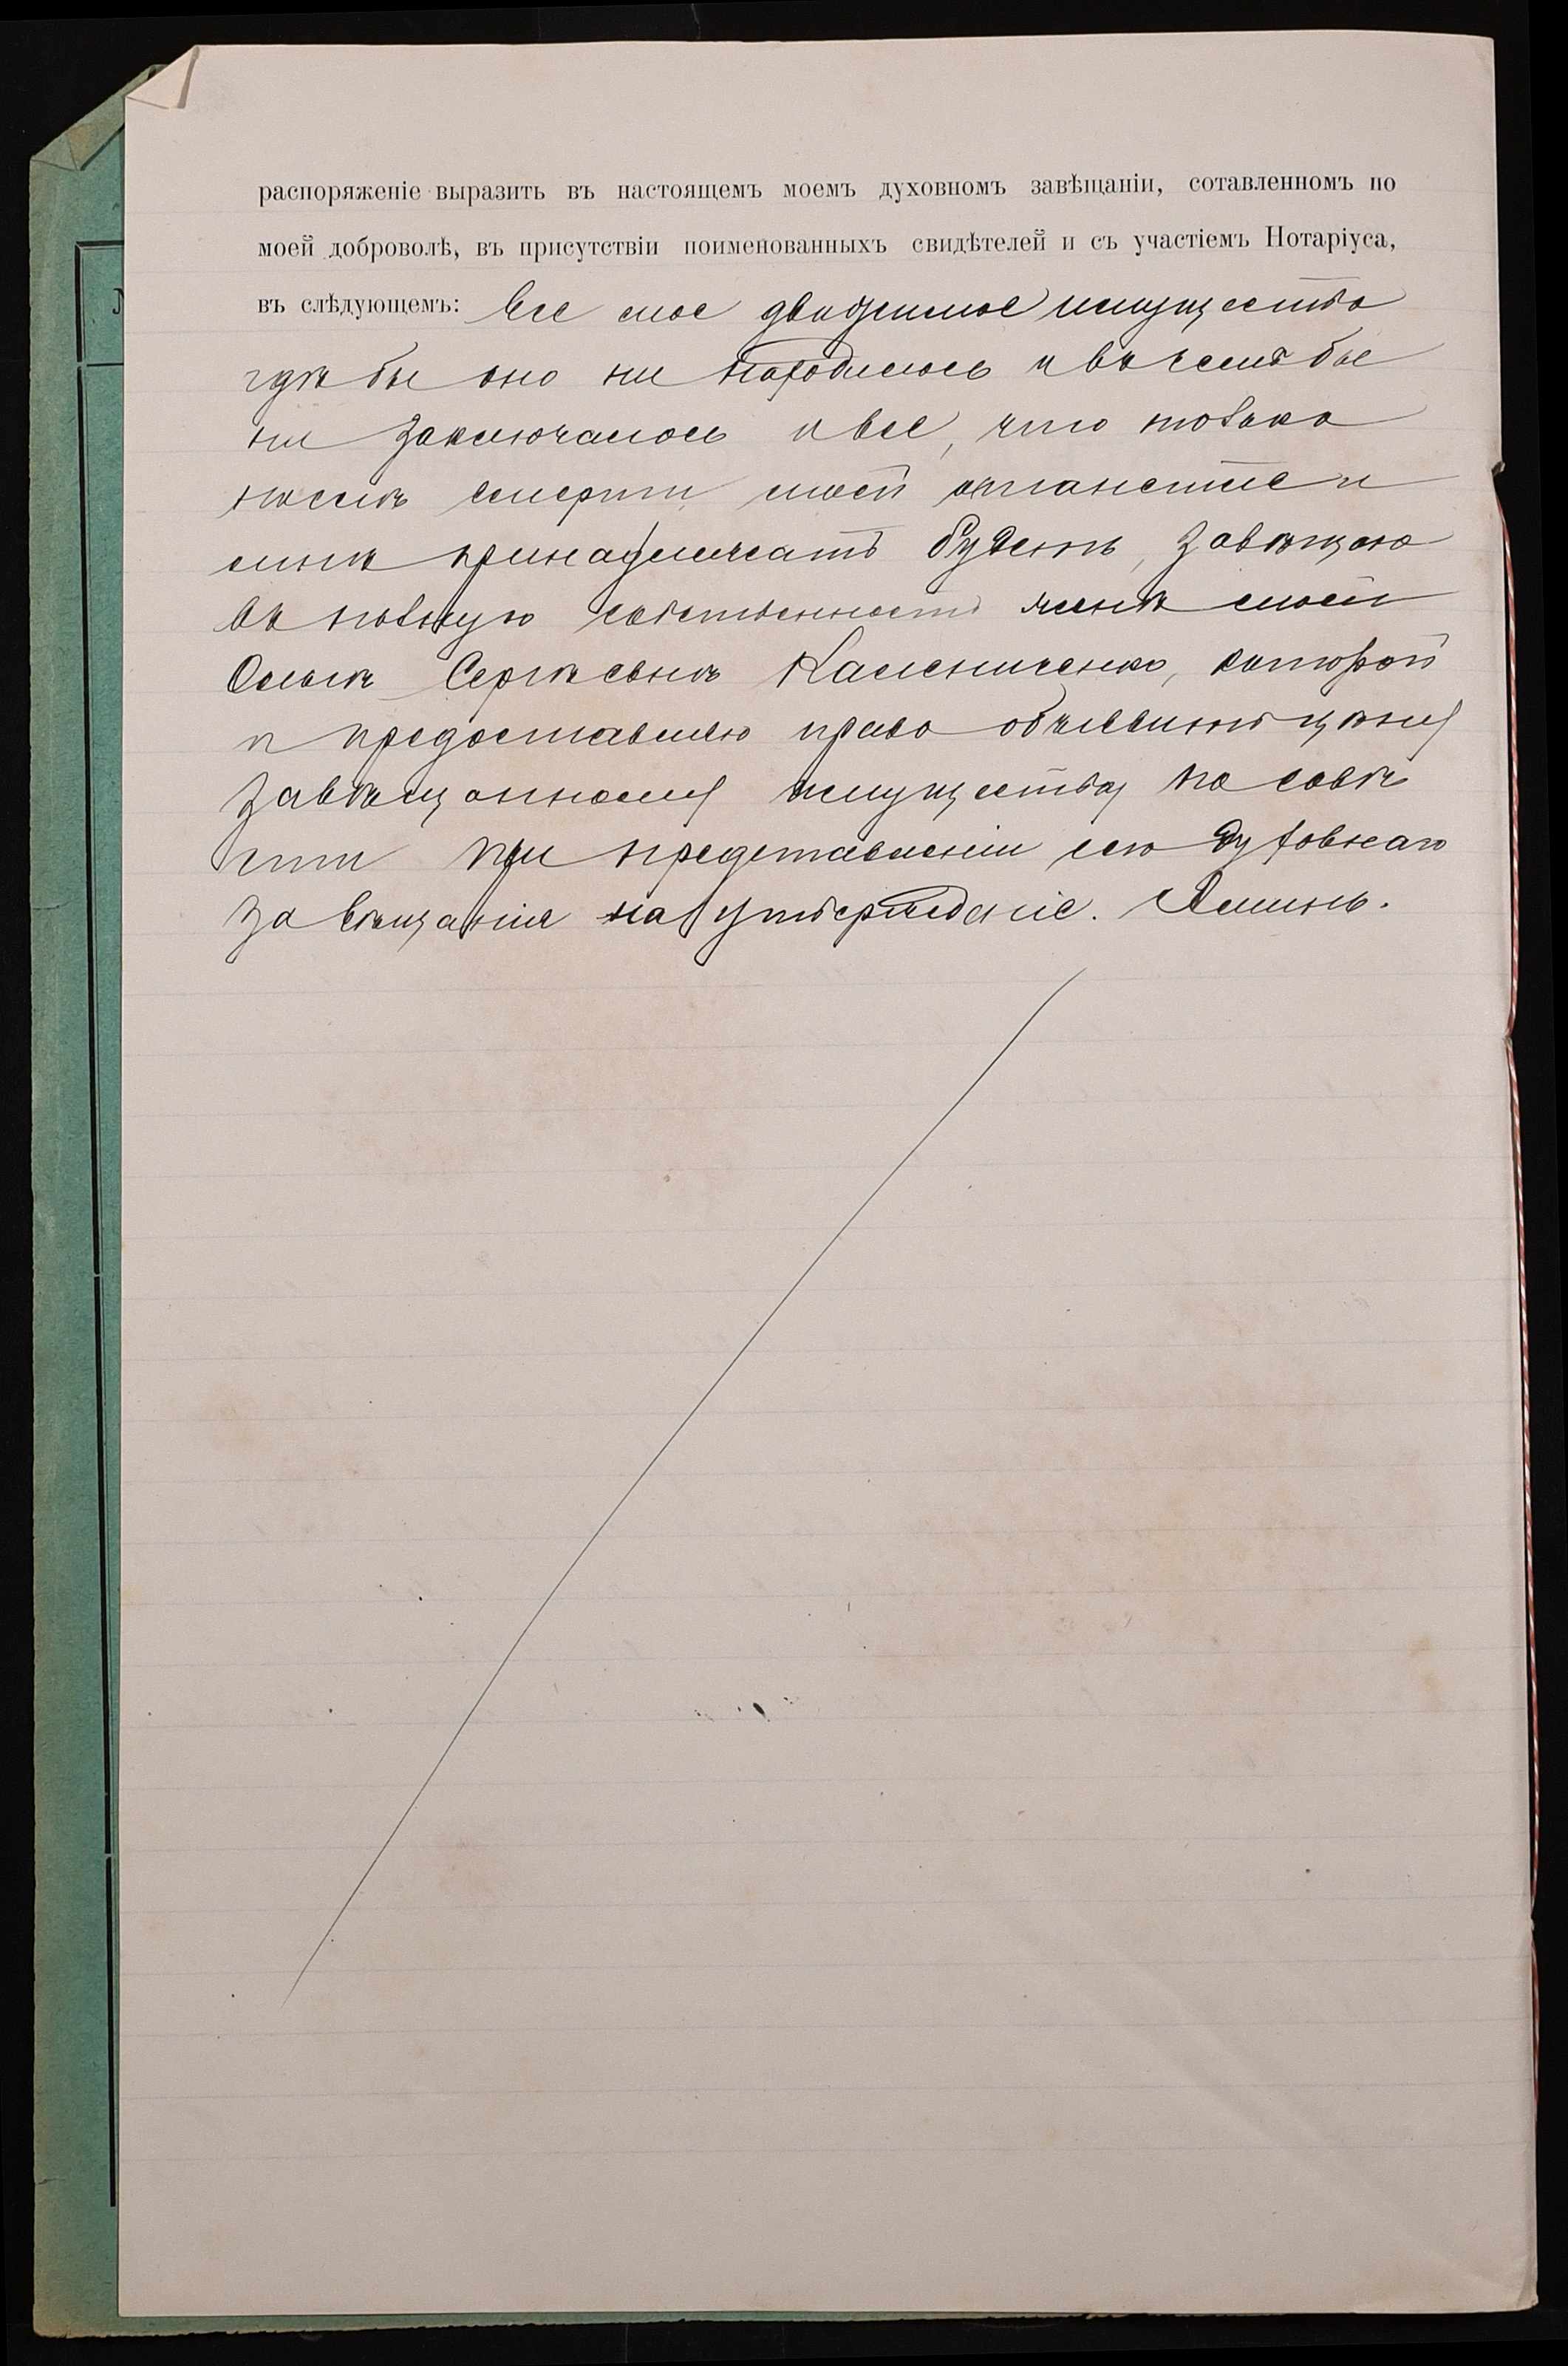 распоряженіе выразить въ настоящемъ моемъ духовномъ завѣщаніи, сотавленномъ по
моей доброволѣ, въ присутствіи поименованныхъ свидѣтелей и съ участіемъ Нотаріуса,
въ слѣдующемъ: Все мое движимое имущество
гдѣ бы оно ни находилось и въ чемъ бы
ни заключалось и все, что только
послѣ смерти моей останется и
мнѣ принадлежать будетъ, завѣщаю
въ полную собственность женѣ моей
Ольгѣ Сергѣевнѣ Калениченко, которой
и предоставляю право объявить цѣну
завѣщанному имуществу по совѣ
сти при представленіи сего духовнаго
завѣщанія на утвержденіе. Аминь.